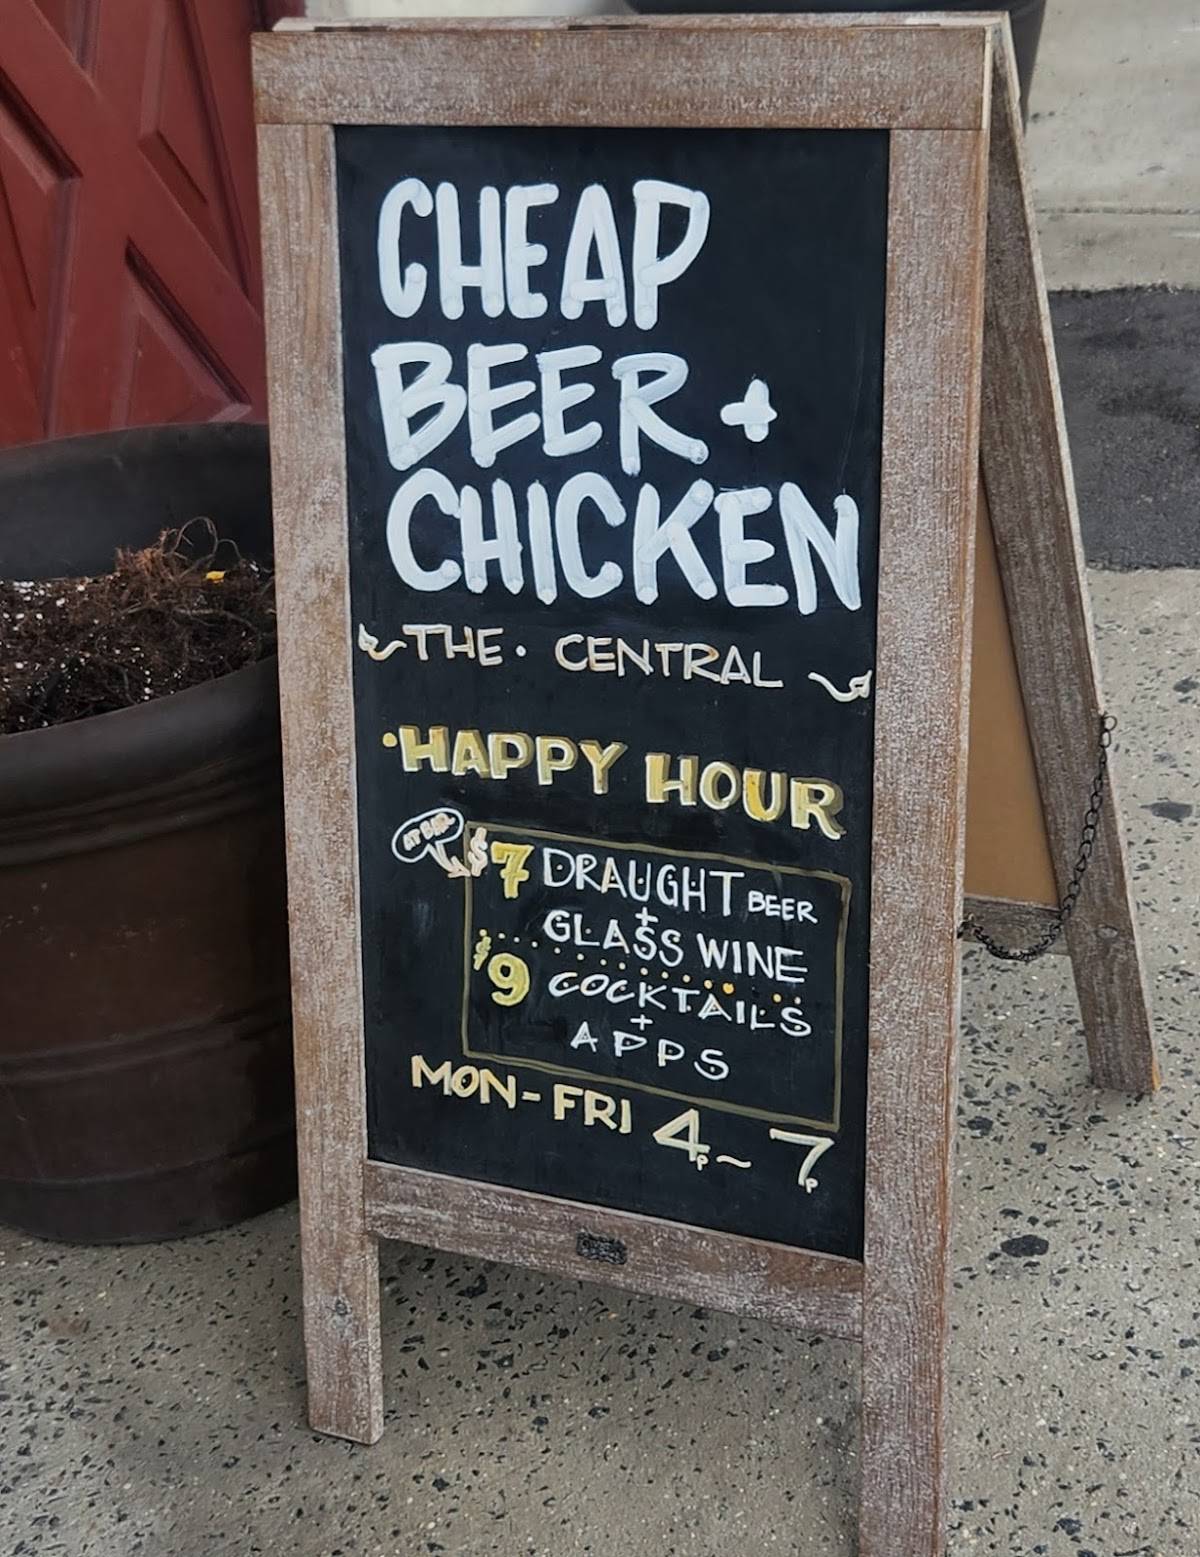 CHEAP
BEER +
CHICKEN
THE · CENTRAL
·HAPPY HOUR
AT BAR
$7 DRAUGHT BEER
+
GLASS WINE
$9 COCKTAILS
+
APPS
MON-FRI 4P~7P